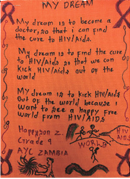 MY DREAM
My dream is to become a
doctor, so that I can find
the cure to HIV/AIDS.
My dream is to find the cure
to HIV/AIDS so that we can
kick HIV/AIDS out of the
world.
My dream is to kick HIV/AIDS
out of the world because I
want to see a happy free
world from HIV/AIDS
Happyson Z
Grade 9
AYC ZAMBIA
WORLD